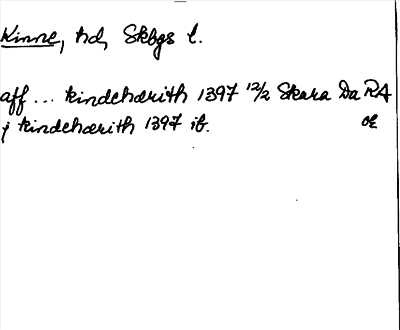 Kinne, hd, Skbgs l.
aff ... kindehærith 1397 12/2 Skara Da RA
j kindehærith 1397 ib. or